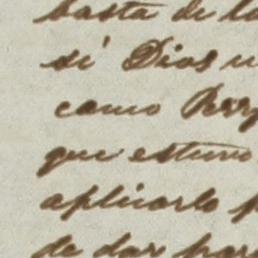 basta de la
sé Dios u
como Perg
que estuvo
aplicarlo p
de dar par